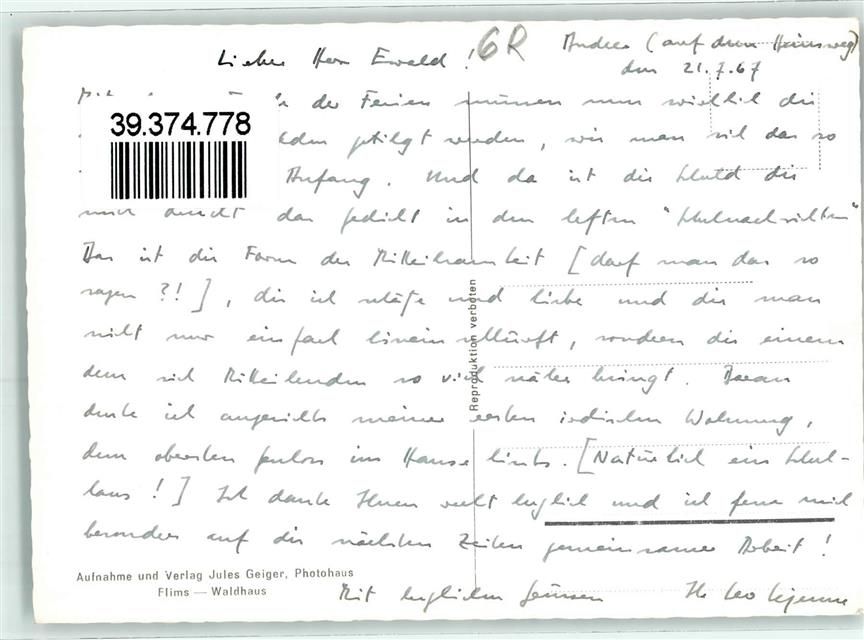 Lieber Herr Ewald! 6R Andeer (auf dem Heimweg)
den 21.7.67
der Ferien müssen nun wirklich die
39.374.778
getilgt werden, wie man sich das so
Anfang. Und da ist die Schuld die
das Gedicht in den letzten "Schulnachrichten"
Das ist die Form der Mitteilsamkeit [darf man das so
sagen ?!], die ich schätze und liebe und die man
nicht nur einfach hineinschlürft, sondern die einem
dem sich Mitteilenden so viel näher bringt. Daran
denke ich angesichts meiner ersten irdischen Wohnung,
dem obersten im Hause links. [Natürlich ein Schul-
haus!] Ich danke Ihnen recht herzlich und ich freue mich
besonders auf die nächsten Zeiten gemeinsamer Arbeit!
Reproduktion verboten
Aufnahme und Verlag Jules Geiger, Photohaus
Flims — Waldhaus
Mit herzlichen Grüssen Ihr Leo